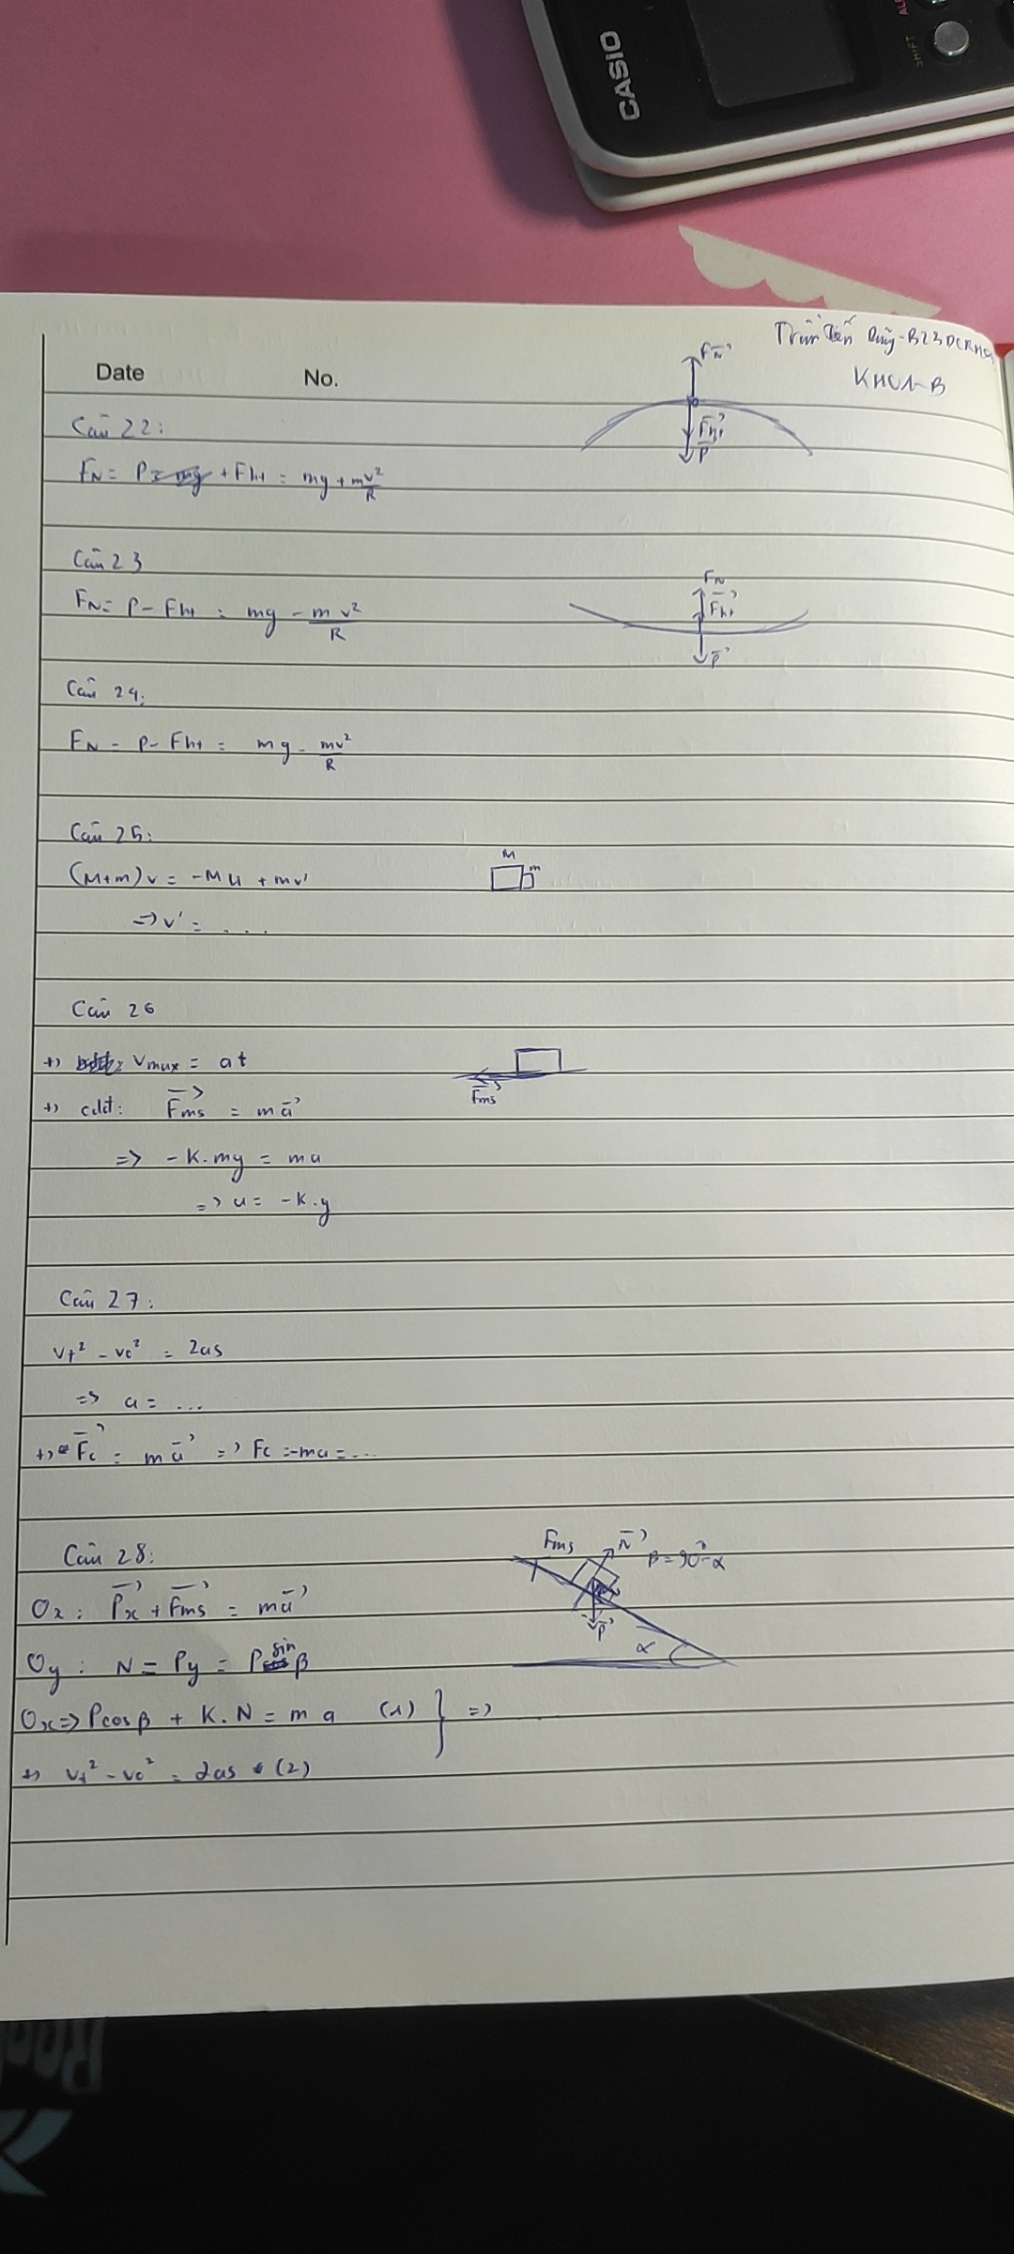 CASIO
SHIFT
Trần Tiến Dũng - B23DCKH
KHCN-B
Date No.
Câu 22:
F_N = P = mg + Fht = mg + mv²/R
F_N
Fht
P
Câu 23
F_N = P - Fht = mg - mv²/R
F_N
Fht
P
Câu 24:
F_N = P - Fht = mg - mv²/R
Câu 25:
(M+m)v = -Mu + mv'
M m
=> v' = ....
Câu 26
+) Vmax = at
+) cđd: Fms = ma
Fms
=> -K.mg = ma
=> a = -K.g
Câu 27:
Vt² - Vo² = 2as
=> a = ...
+) Fc = ma => Fc = -ma = ...
Câu 28:
Fms N β = 90° - α
P α
Ox: Px + Fms = ma
Oy: N = Py = P sin β
Ox => P cos β + K.N = ma (1) } =>
+) Vt² - Vo² = 2as (2)